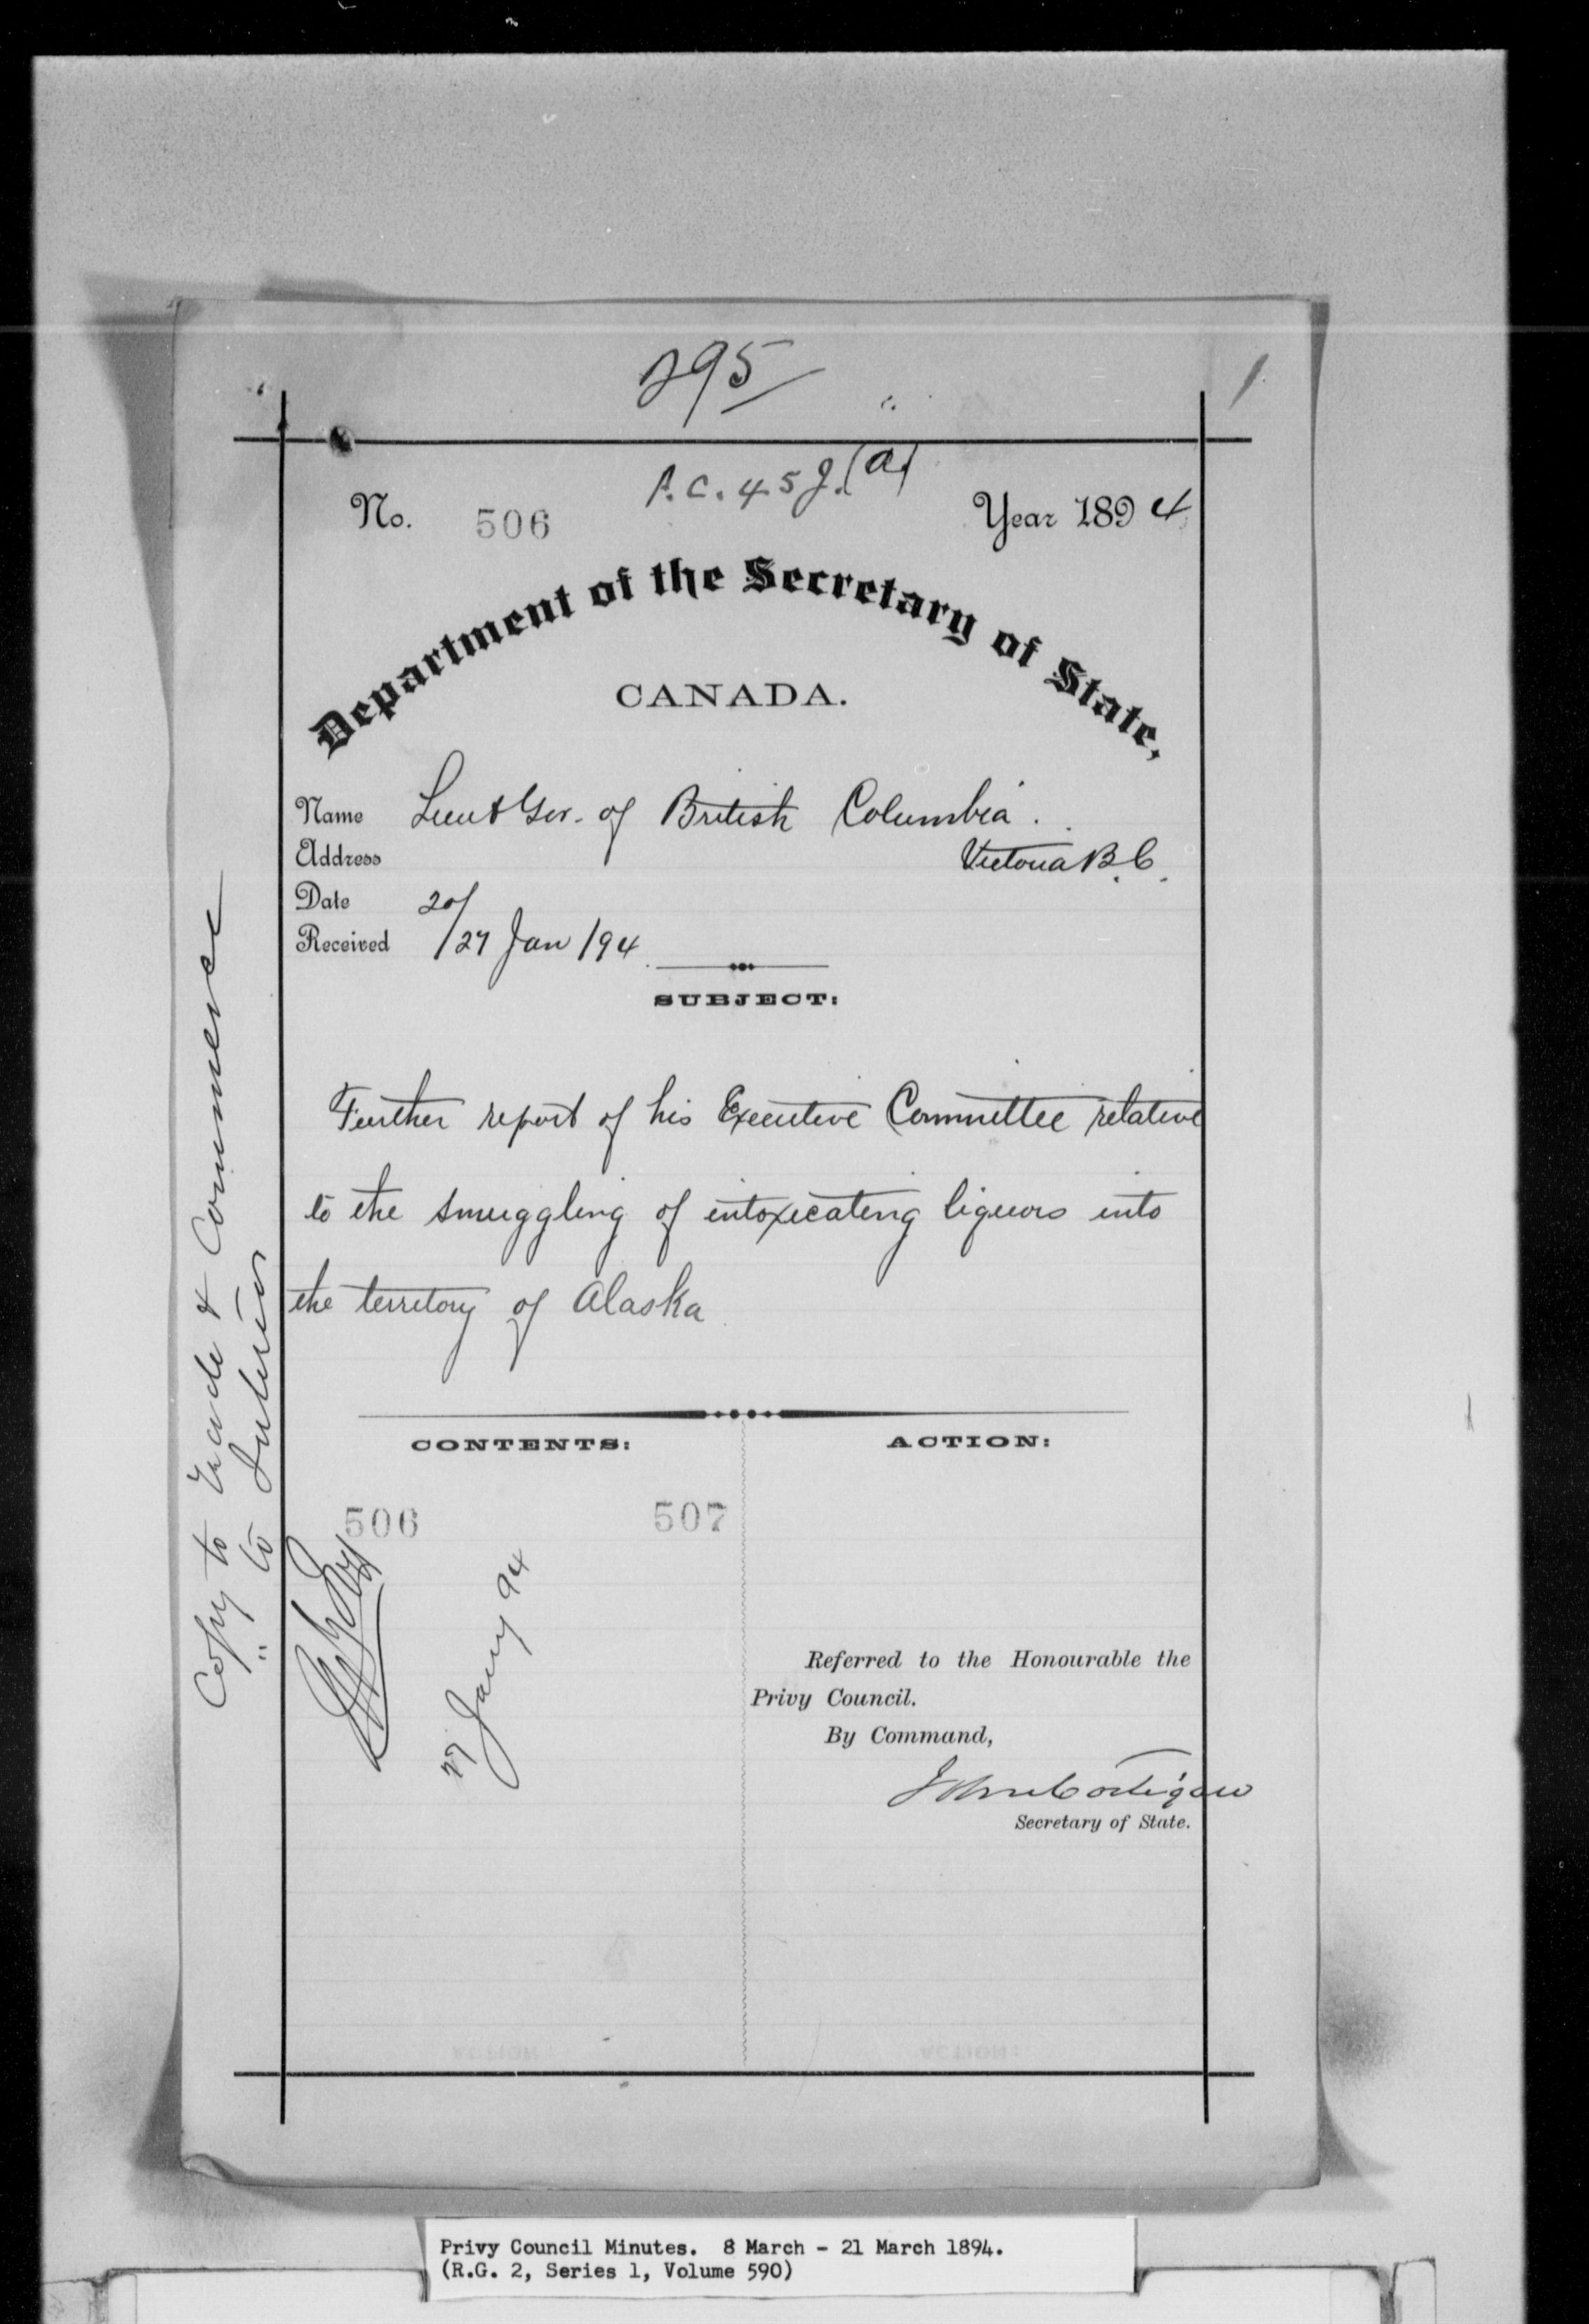 295
1
P.C. 45 J. (a)
No. 506 Year 1894
Department of the Secretary of State,
CANADA.
Name Lieut Gov. of British Columbia.
Address Victoria B.C.
Date 20/
Received /27 Jan /94
SUBJECT:
Further report of his Executive Committee relative
to the smuggling of intoxicating liquors into
the territory of Alaska
Copy to Trade & Commerce
" to Interior
CONTENTS: ACTION:
506 507
27 Jany 94
Referred to the Honourable the
Privy Council.
By Command,
John Costigan
Secretary of State.
Privy Council Minutes. 8 March - 21 March 1894.
(R.G. 2, Series 1, Volume 590)